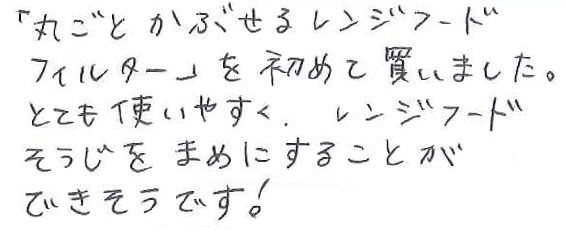 「丸ごと かぶせる レンジフード
フィルター」を 初めて 買いました。
とても 使いやすく、レンジフード
そうじを まめにすることが
できそうです!